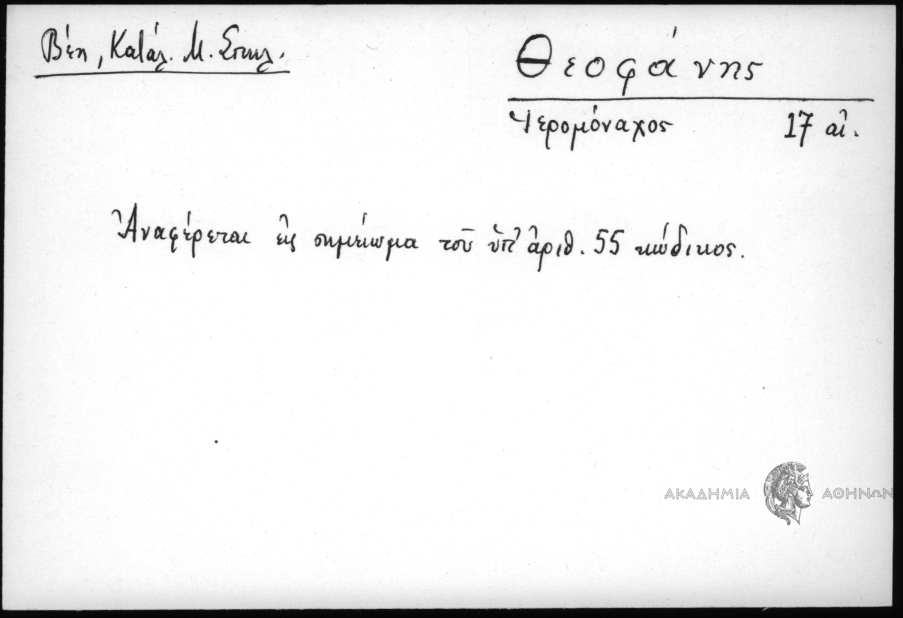 Βέη, Κατάλ. Μ. Σπηλ.
Θεοφάνης
Ἱερομόναχος 17 αἰ.
Ἀναφέρεται εἰς σημείωμα τοῦ ὑπ' ἀριθ. 55 κώδικος.
ΑΚΑΔΗΜΙΑ ΑΘΗΝΩΝ